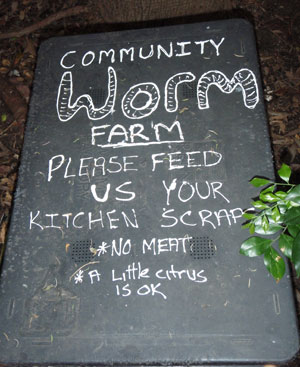 COMMUNITY
Worm
FARM
PLEASE FEED
US YOUR
KITCHEN SCRAPS
*NO MEAT
*A Little citrus
IS OK